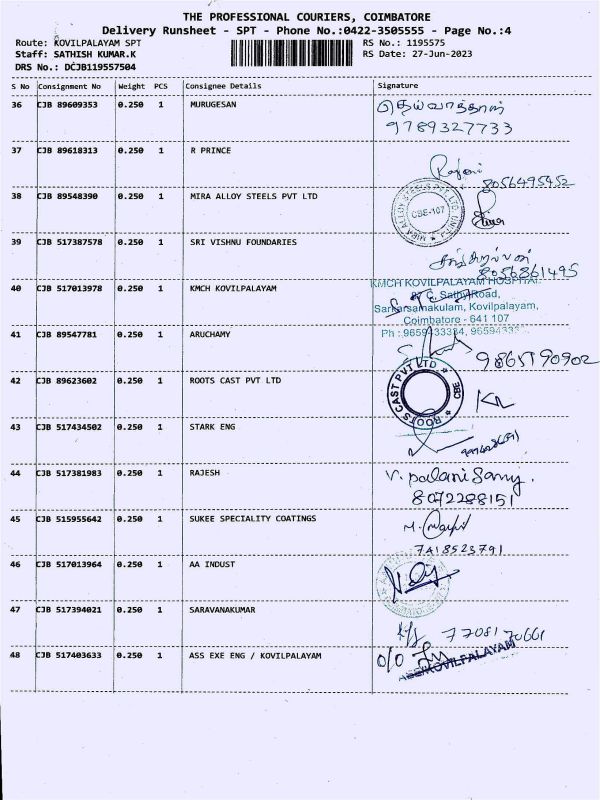 THE PROFESSIONAL COURIERS, COIMBATORE
Delivery Runsheet - SPT - Phone No.:0422-3505555 - Page No.:4
Route: KOVILPALAYAM SPT RS No.: 1195575
Staff: SATHISH KUMAR.K RS Date: 27-Jun-2023
DRS No.: DCJB119557504
S No Consignment No Weight PCS Consignee Details Signature
36 CJB 89609353 0.250 1 MURUGESAN
9789327733
37 CJB 89618313 0.250 1 R PRINCE
8056495952
38 CJB 89548390 0.250 1 MIRA ALLOY STEELS PVT LTD
MIRA ALLOY STEELS PVT LTD. UNIT
CBE-107
39 CJB 517387578 0.250 1 SRI VISHNU FOUNDARIES
8056861495
40 CJB 517013978 0.250 1 KMCH KOVILPALAYAM
KMCH KOVILPALAYAM HOSPITAL
Sathy Road,
Sarkarsamakulam, Kovilpalayam,
Coimbatore - 641 107
Ph : 9659433334, 96594333
41 CJB 89547781 0.250 1 ARUCHAMY
42 CJB 89623602 0.250 1 ROOTS CAST PVT LTD
ROOTS CAST PVT LTD CBE
43 CJB 517434502 0.250 1 STARK ENG
44 CJB 517381983 0.250 1 RAJESH
V. palani Samy.
8072288151
45 CJB 515955642 0.250 1 SUKEE SPECIALITY COATINGS
7418523791
46 CJB 517013964 0.250 1 AA INDUST
47 CJB 517394021 0.250 1 SARAVANAKUMAR
7708170661
48 CJB 517403633 0.250 1 ASS EXE ENG / KOVILPALAYAM
O/O
KOVILPALAYAM